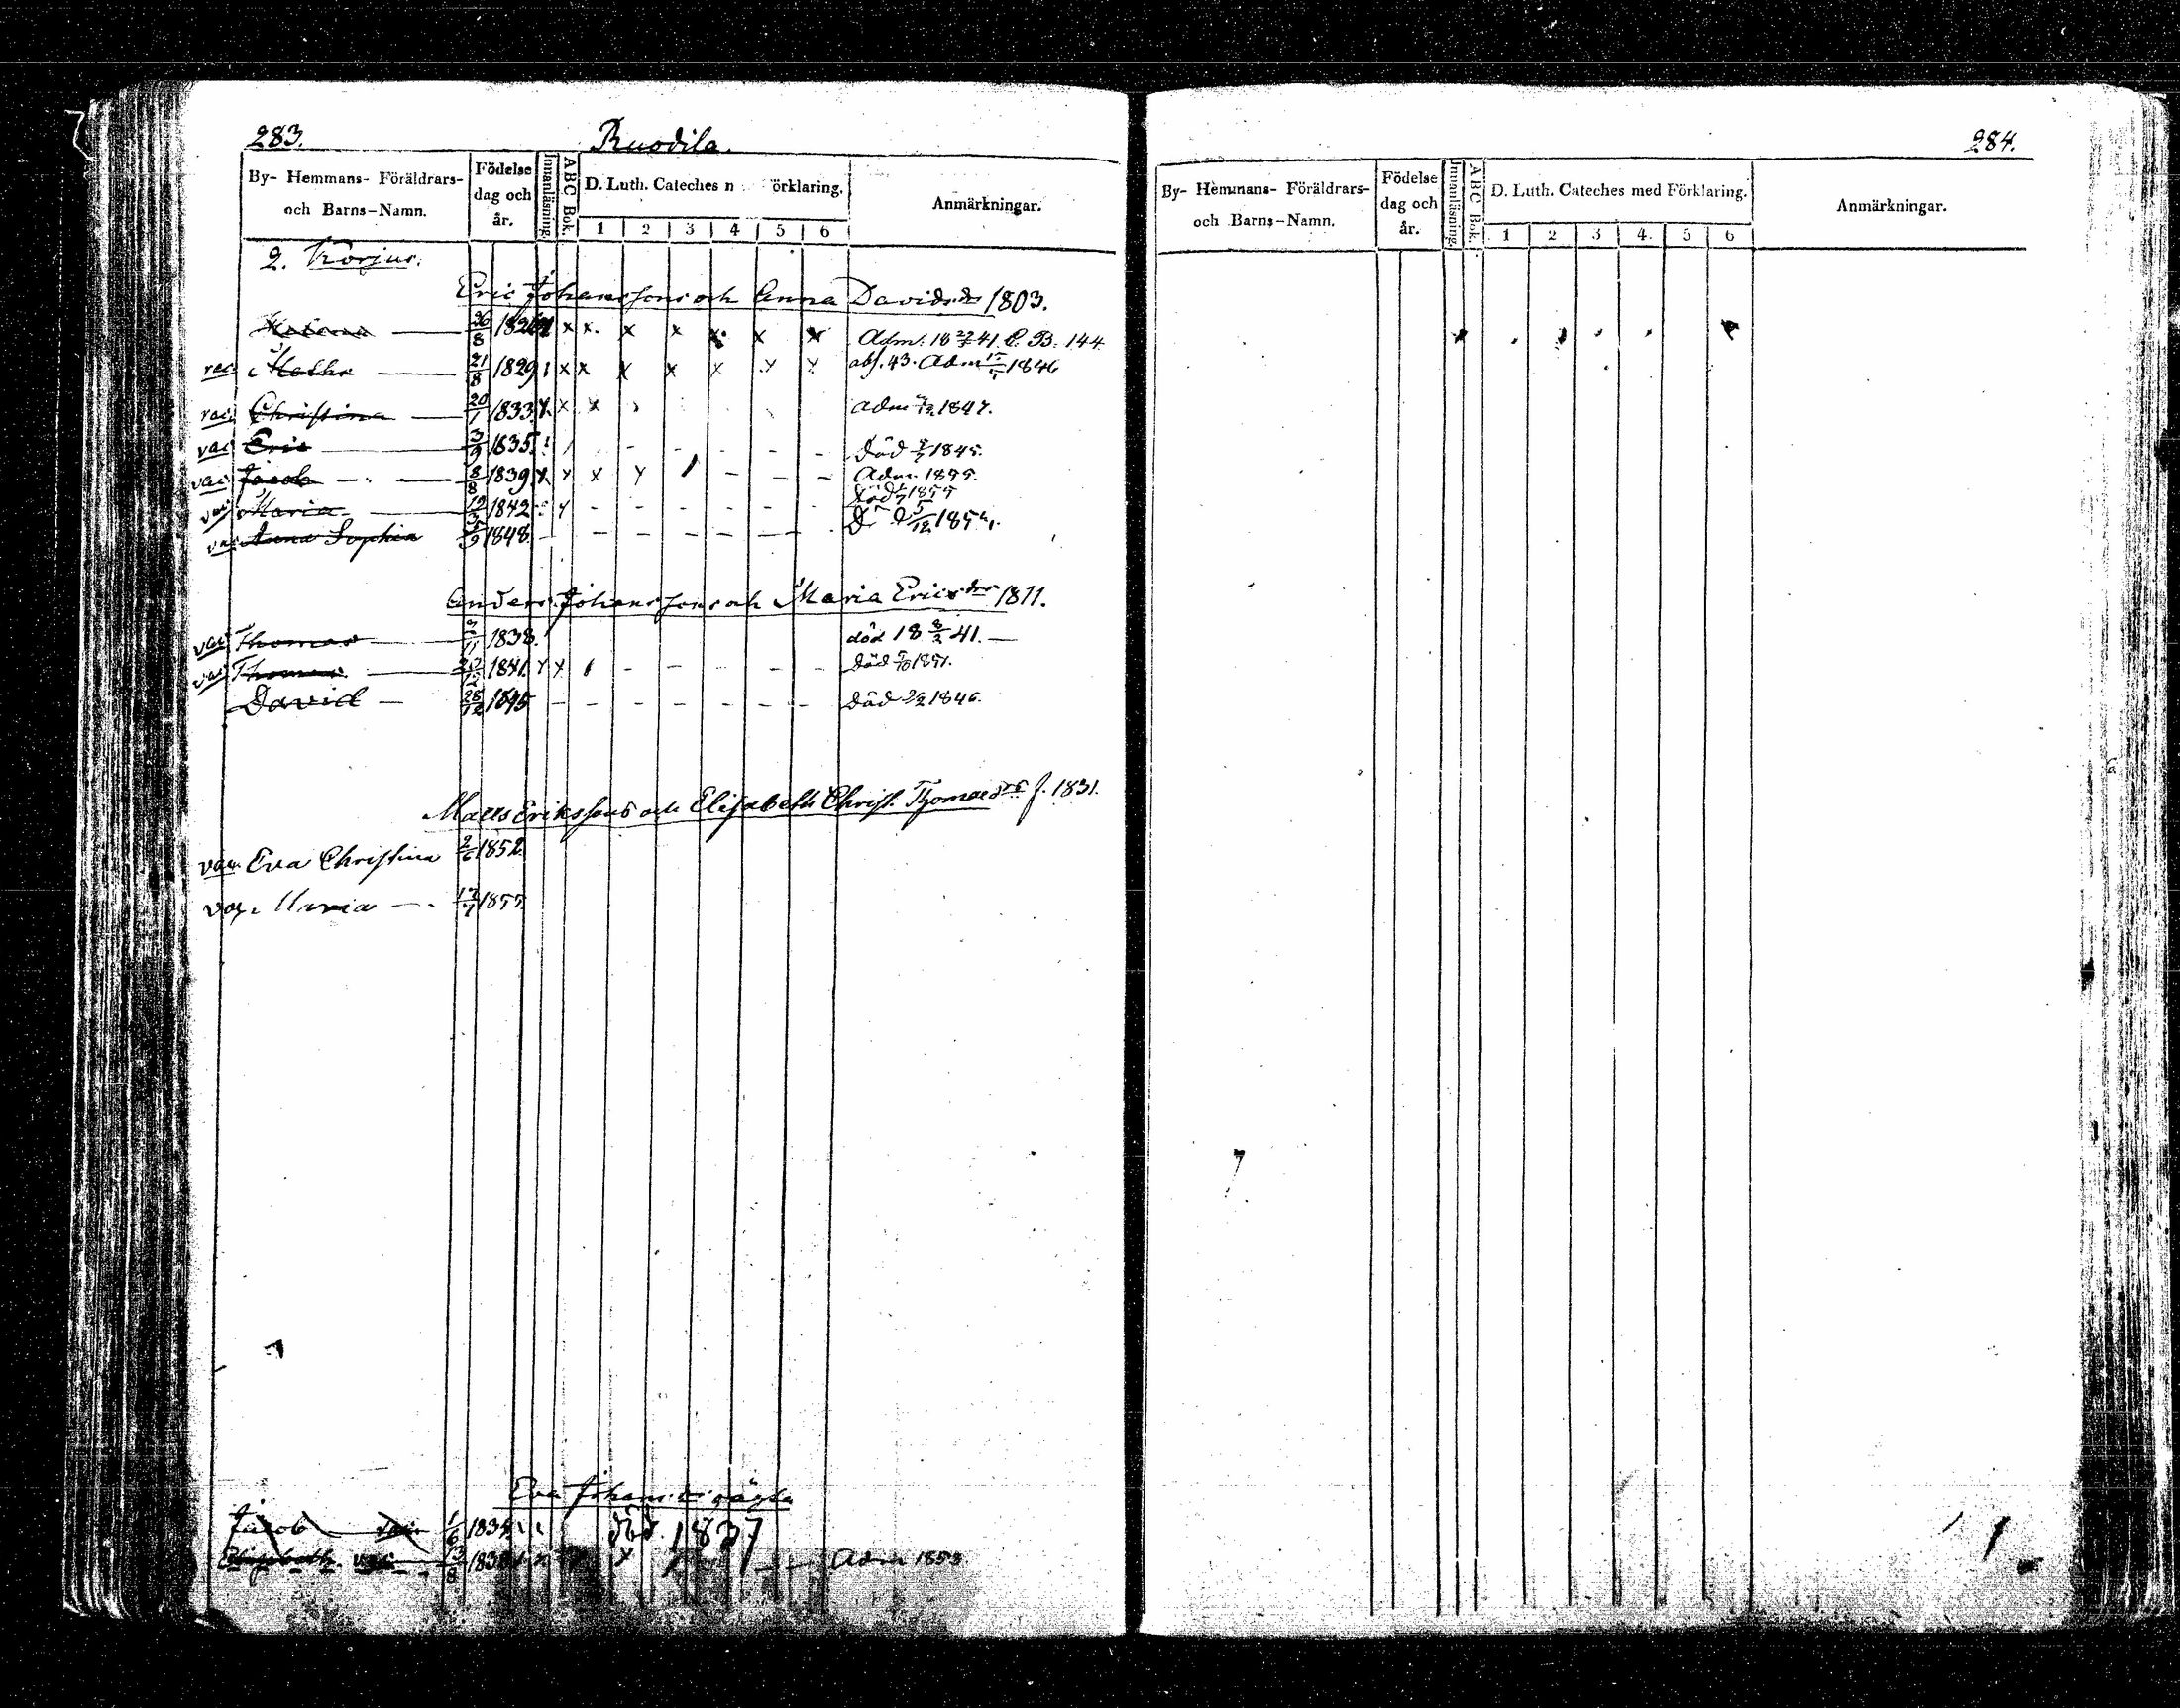 283.
Ruodila.
By- Hemmans- Föräldrars- och Barns-Namn.
Födelse dag och år.
Innanläsning.
ABC Bok.
D. Luth. Cateches n örklaring.
1 2 3 4 5 6
Anmärkningar.
2. Korjus.
Eric Johanssons och Anna Davids dr 1803.
Helena 26/8 1826 x x. x x x x x Adm. 18 41. C. B. 144
vac Matts 21/8 1829 x x x x x x x abs. 43. Adm 1846
vac Christina 20/1 1833 x x x Adm 1847.
vac Eric 3/9 1835 Död 1845.
vac Jacob 8/8 1839 x x x x Adm. 1855.
vac Maria 1842 x - - - - - - död 1855
vac Anna Sophia 5/9 1848. - - - - - - - D d 5/12 185
Anders Johanssons och Maria Erics dr 1811.
vac Thomas /11 1838. död 18 8/2 41.
vac Thomas /12 1841. x x - - - - - Död 5/10 1851.
David 28/12 1845 - - - - - - - Död 1846.
Matts Erikssons och Elisabeth Christ. Thomaedr f. 1831.
vac. Eva Christina 2/6 1852
vac. Maria 17/7 1855
Eva Johans
Jacob 1/6 1835 död. 1837
Elisabeth vac 13/8 183 Adm 1853
284.
By- Hemmans- Föräldrars- och Barns-Namn.
Födelse dag och år.
Innanläsning.
ABC Bok.
D. Luth. Cateches med Förklaring.
1 2 3 4 5 6
Anmärkningar.